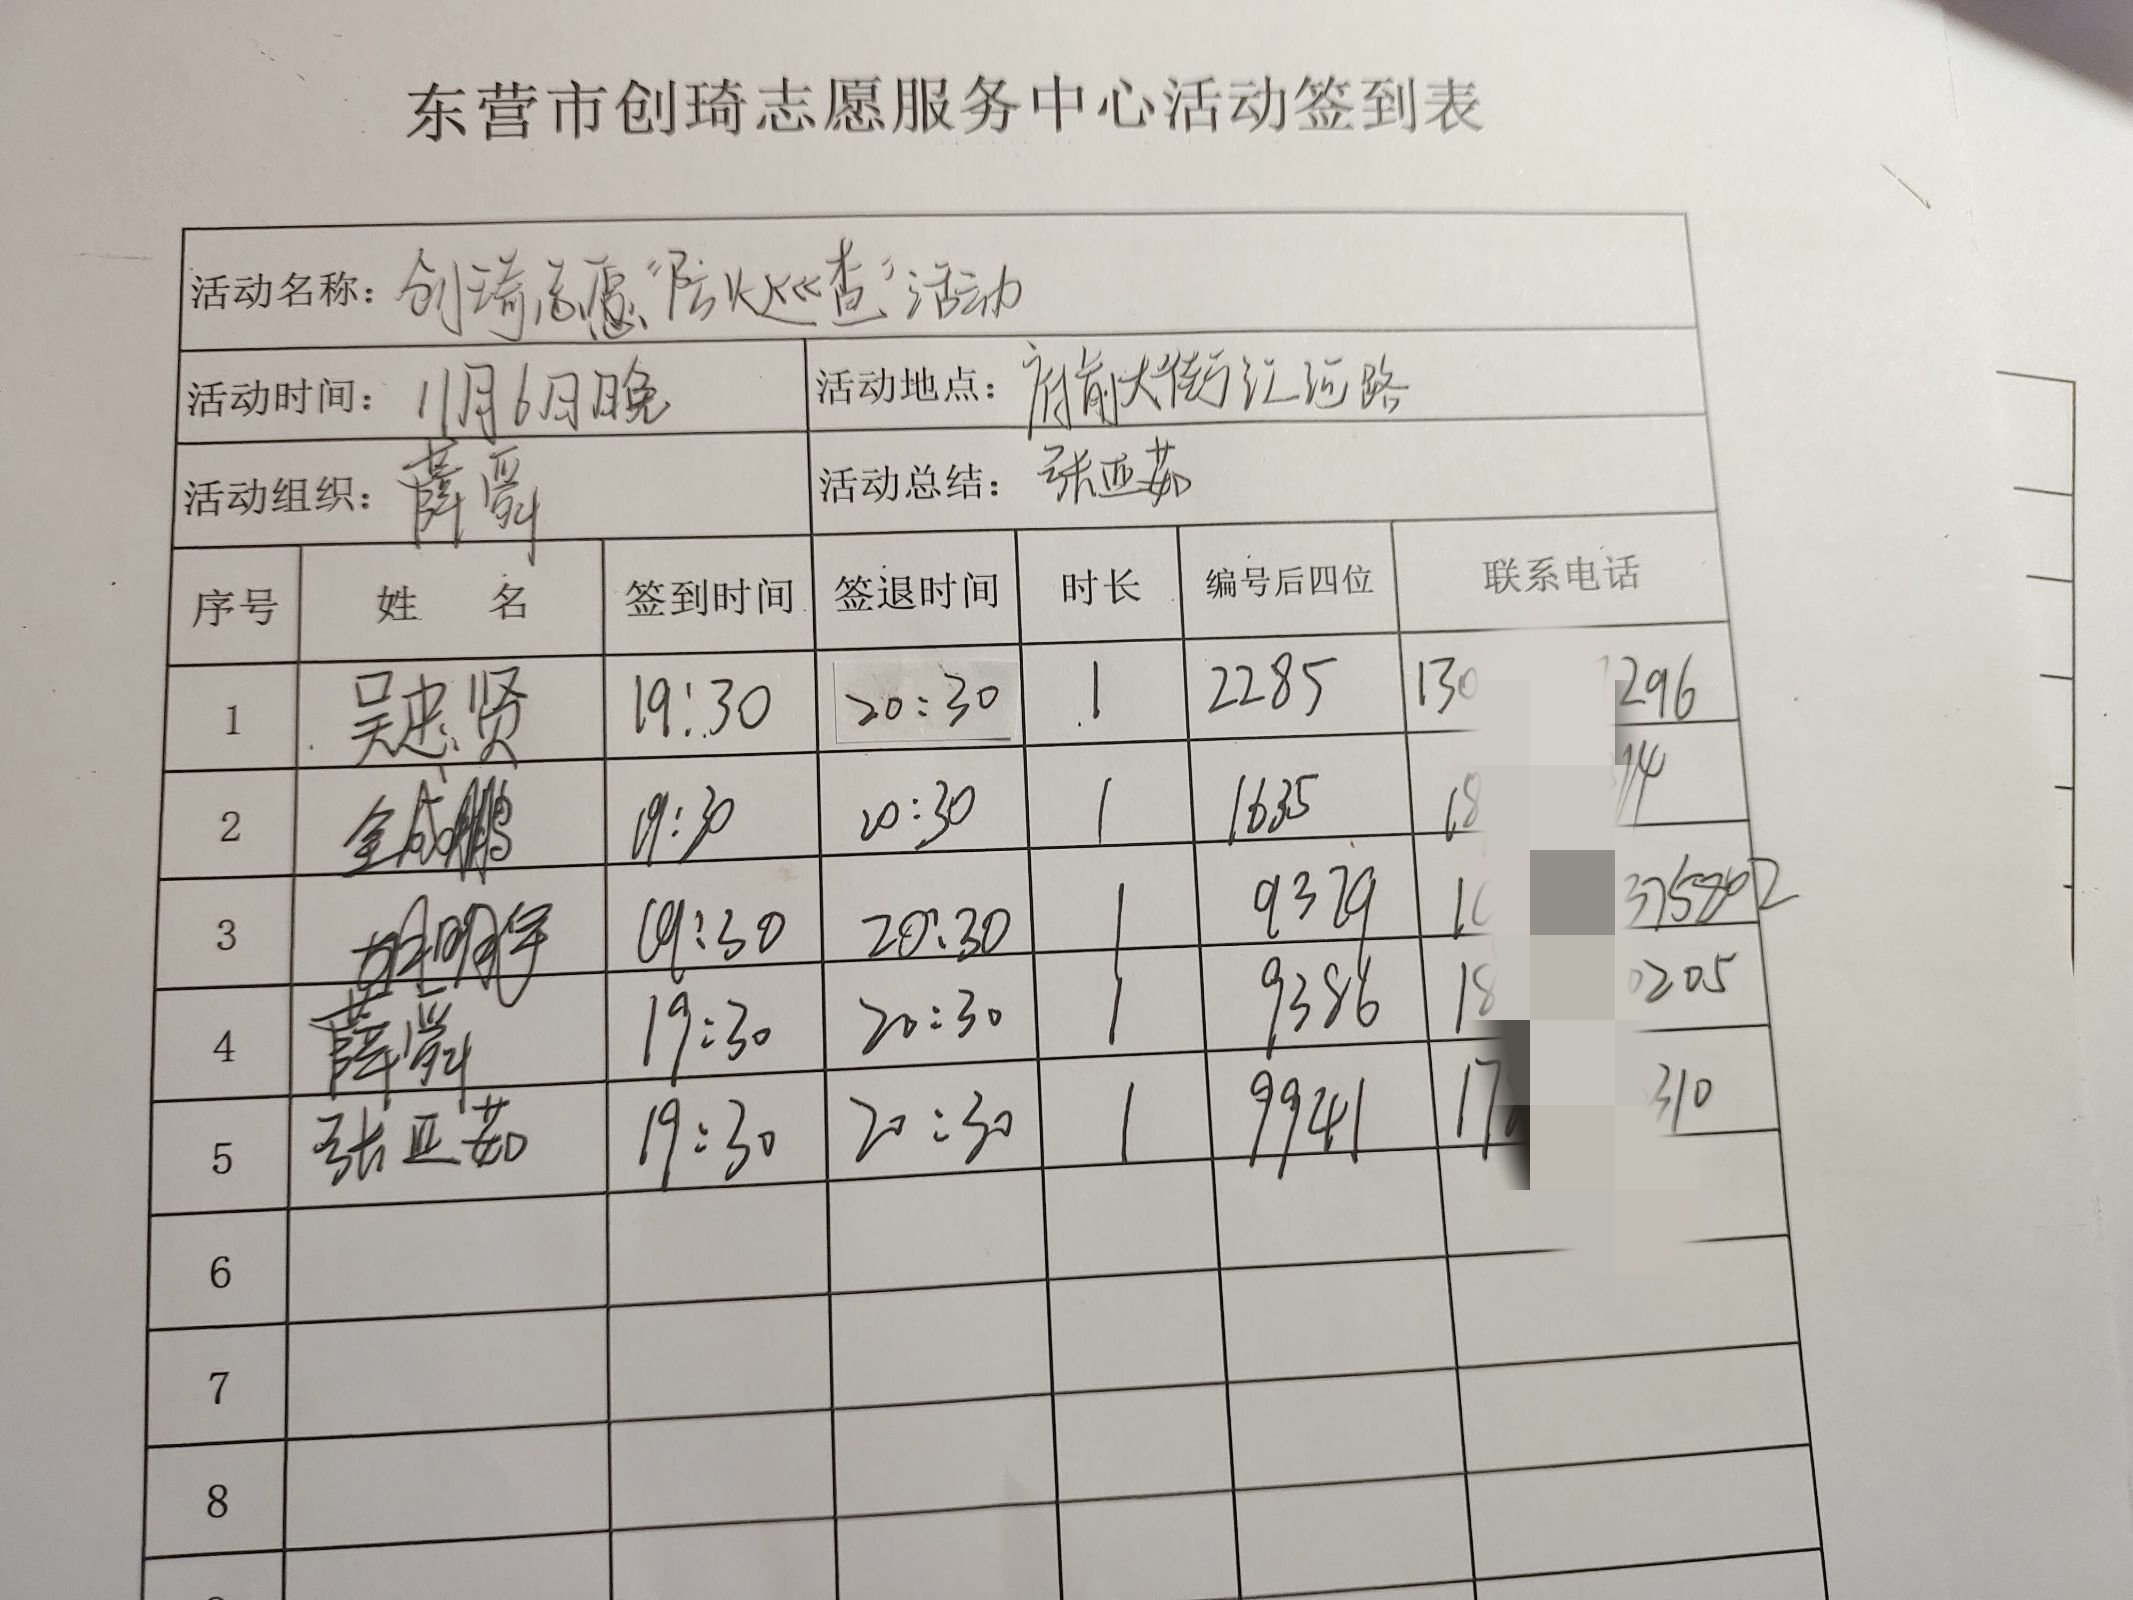 东营市创琦志愿服务中心活动签到表
活动名称：创琦志愿“防火巡查”活动
活动时间：11月6日晚 活动地点：府前大街汇河路
活动组织：薛舜 活动总结：张亚茹
序号 姓 名 签到时间 签退时间 时长 编号后四位 联系电话
1 吴忠贤 19:30 20:30 1 2285 130 1296
2 金成鹏 19:30 20:30 1 1635 18 14
3 胡明宇 19:30 20:30 1 9379 375802
4 薛舜 19:30 20:30 1 9386 18 0205
5 张亚茹 19:30 20:30 1 9941 17 310
6
7
8